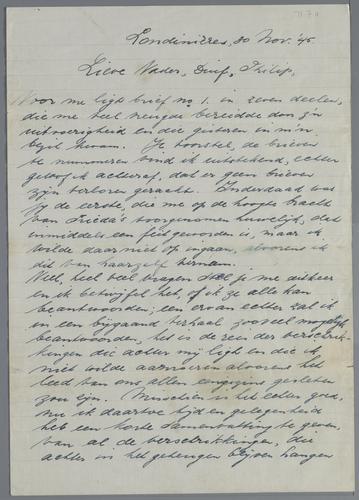 Londinières, 30 Nov. '45.
Lieve Vader, Duif, Philip,
Voor me ligt brief no 1. in zeven deelen,
die me veel vreugde bereidde door z'n
uitvoerigheid en die gisteren in m'n
bezit kwam. Je voorstel, de brieven
te nummeren vind ik uitstekend, echter
geloof ik achteraf, dat er geen brieven
zijn verloren geraakt. Inderdaad was
jij de eerste, die me op de hoogte bracht
van voorgenomen huwelijk, dat
inmiddels een feit geworden is, maar ik
wilde daar niet op ingaan, alvorens ik
dit van haarzelf vernam.
Veel, heel veel vragen stel je me ditkeer
en ik betwijfel het, of ik ze alle kan
beantwoorden; een ervan echter zal ik
in een bijgaand verhaal zooveel mogelijk
beantwoorden, het is de zee der verschrik-
kingen die achter mij ligt en die ik
niet wilde aanroeren alvorens het
leed van ons allen eenigszins gesleten
zou zijn. Misschien is het echter goed,
nu ik daartoe tijd en gelegenheid
heb een korte samenvatting te geven,
van al de verschrikkingen, die
achter in het geheugen blijven hangen